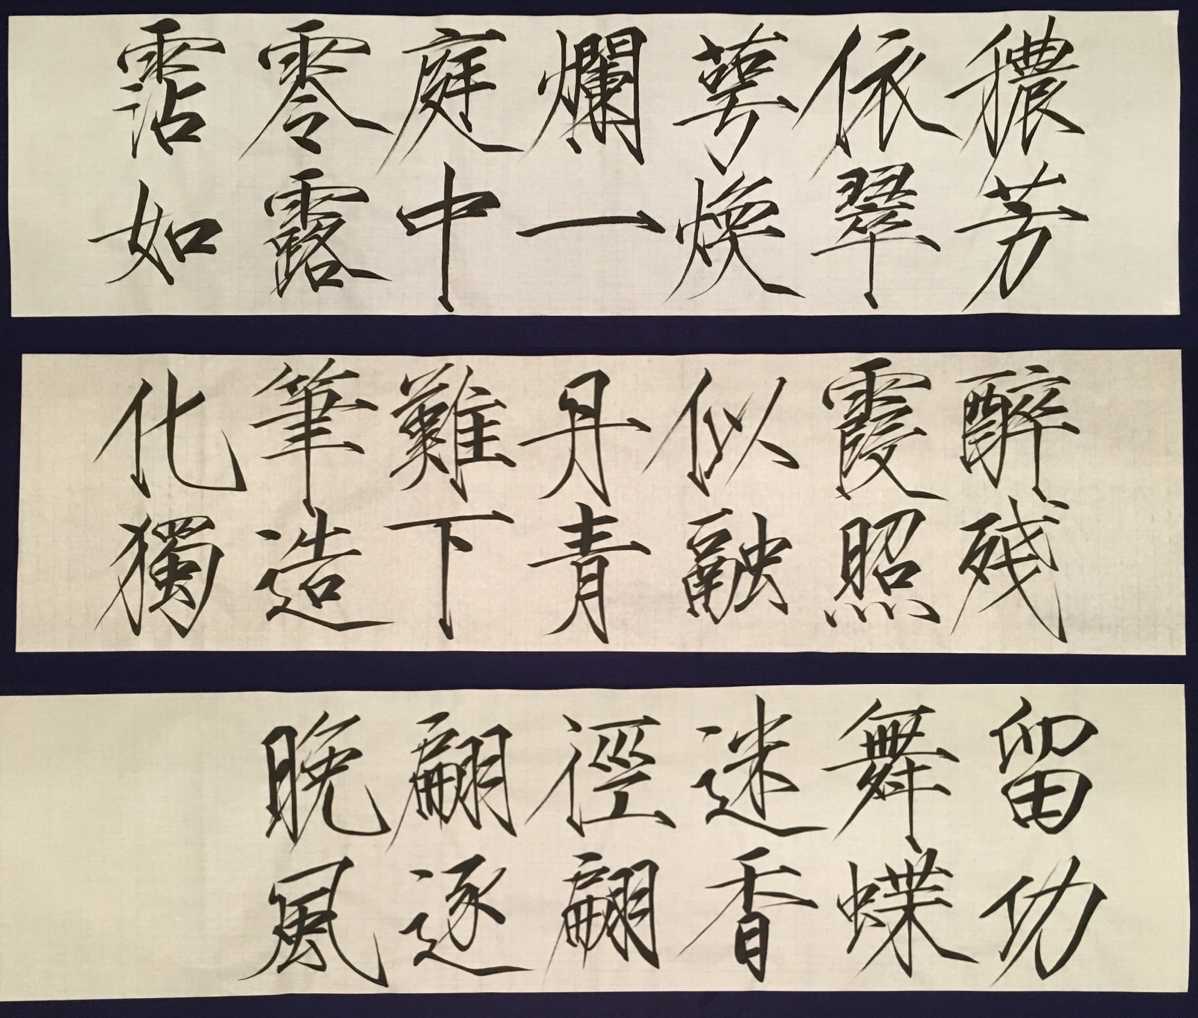 穠芳
依翠
萼煥
爛一
庭中
零露
霑如
醉残
霞照
似融
丹青
難下
筆造
化獨
留功
舞蝶
迷香
徑翩
翩逐
晩風